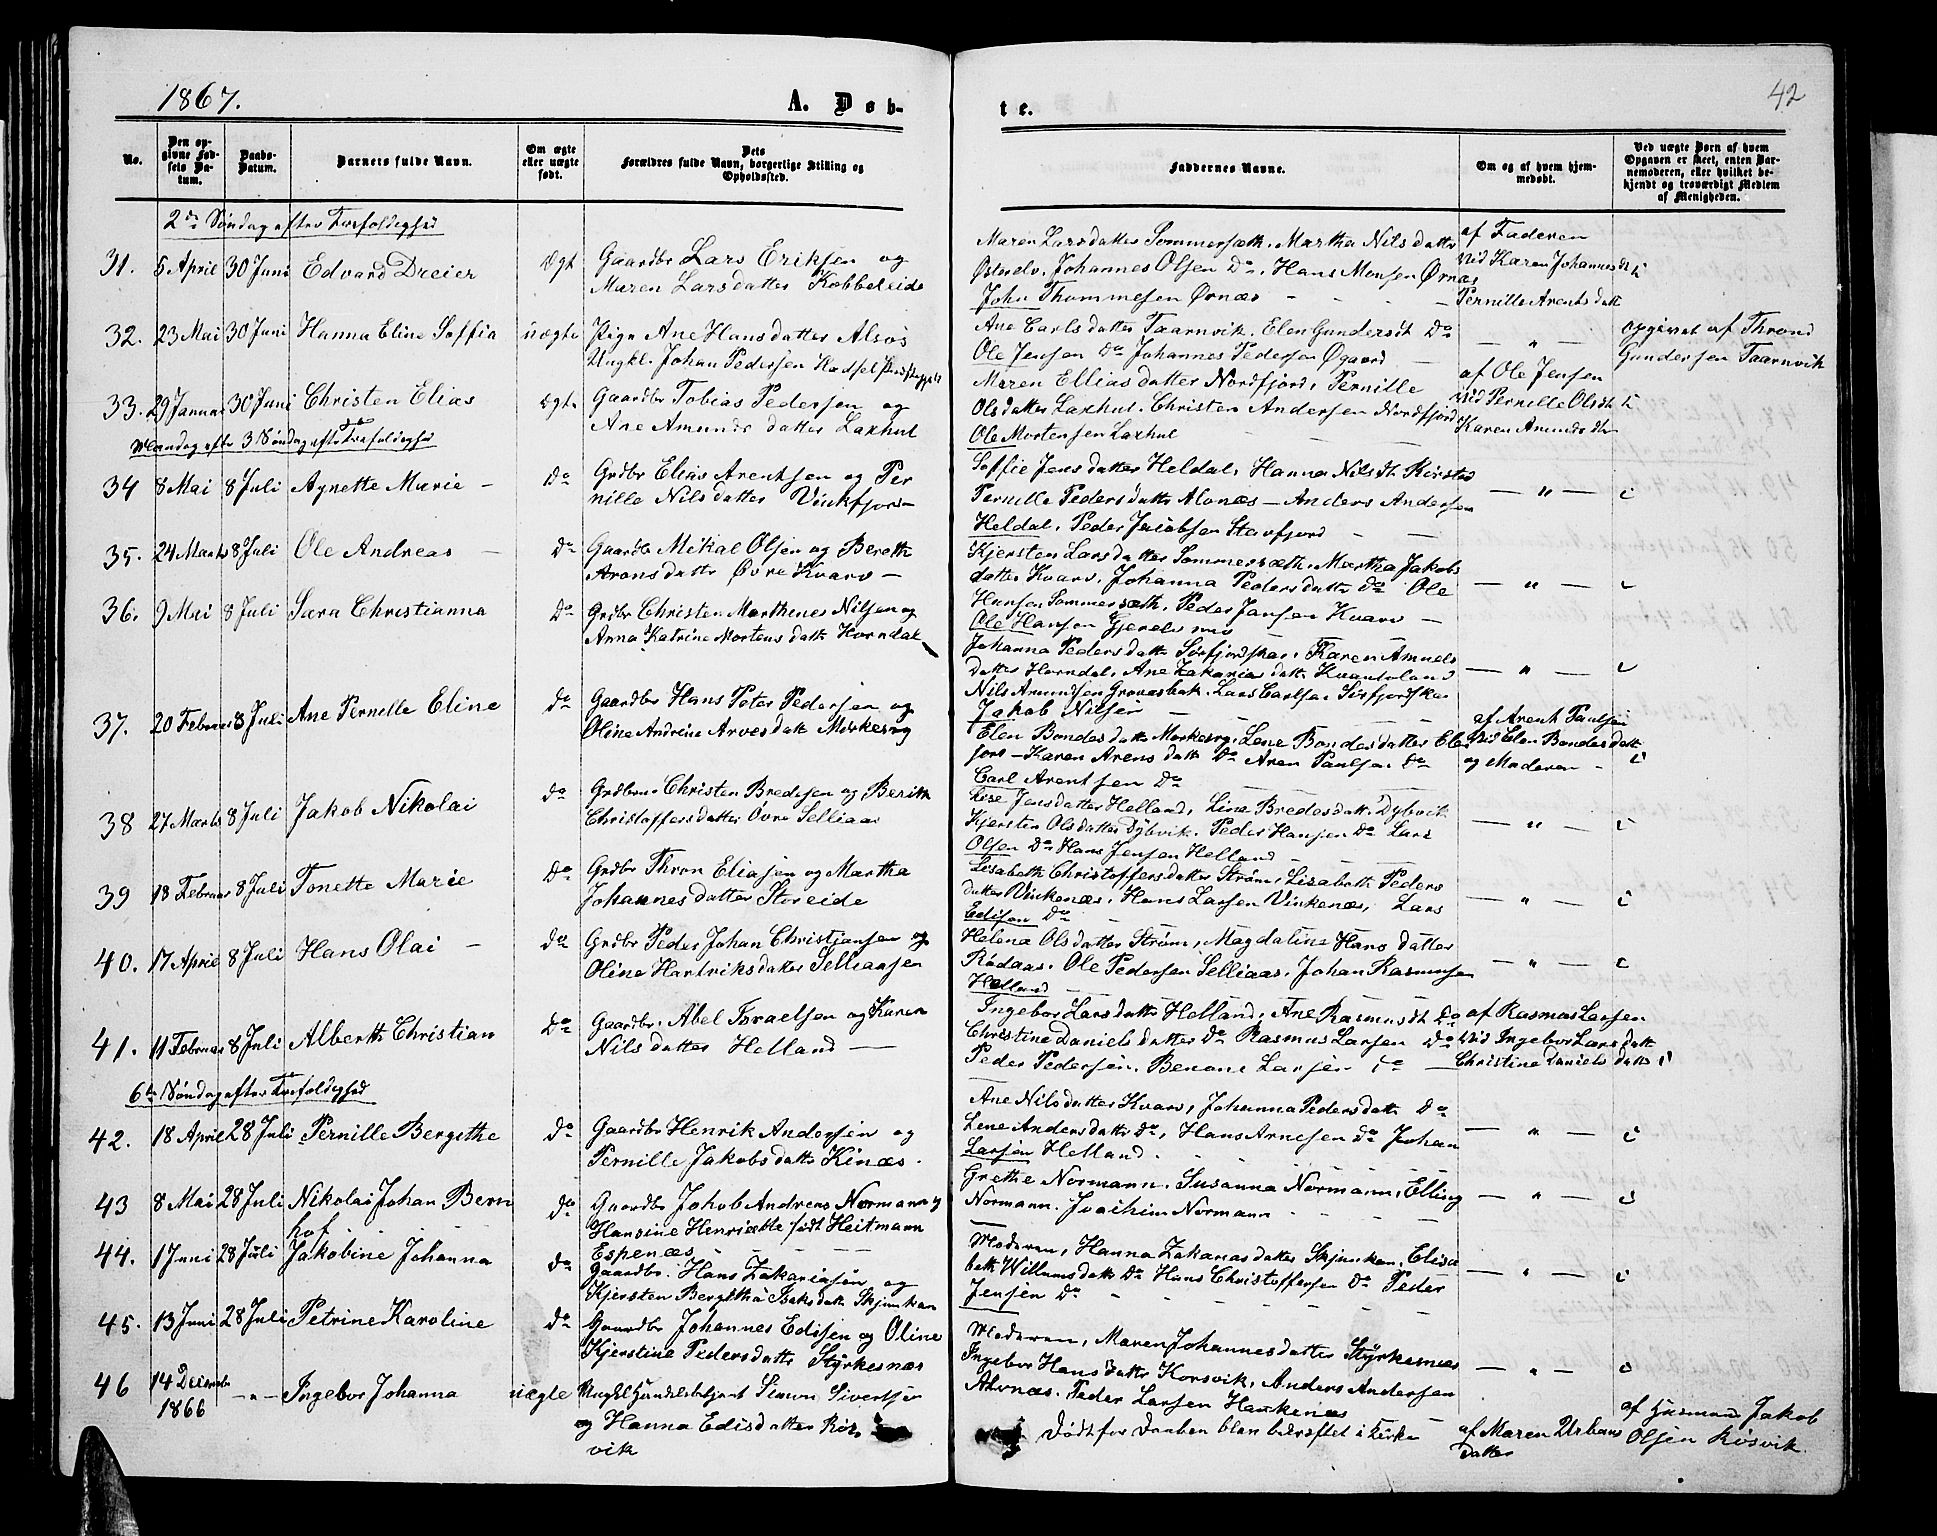 1867.
A. Døb-
te.
42
No.
Den op-
givne Fød-
sels Da-
tum.
Daabs-
Datum.
Barnets fulde Navn.
Om ægte
eller uægte
født.
Dets
Forældres fulde Navn, borgerlige Stilling og
Opholdssted.
Faddernes Navne.
Om og af hvem hjem-
medøbt.
Ved uægte Børn af hvem
Opgaven er skeet, enten Bar-
nemoderen, eller hvilket be-
kjendt og troværdigt Medlem
af Menigheden.
2den Søndag efter Trefoldighed
31. 5 April 30 Juni Edvard Dreier ægt Gaardbr Lars Eriksen og
Maren Larsdatter Kobbeleide
Maren Larsdatter Sommersæth. Martha Nilsdatter
Osterelv. Johannes Olsen Do. Hans Monsen Ørnæs
John Thommesen Ørnæs
af Faderen
ved Karen Johannesdt
Pernille Arentsdatt
32. 23 Mai 30 Juni Hanna Eline Soffia uægte Pige Ane Hansdatter Alsos
Ungkl. Johan Pedersen Hadsel
Ane Carlsdatter Taarnvik. Elen Gundersdt Do
Ole Jensen Do Johannes Pedersen Øgaard
— " —
opgivet af Thrond
Gundersen Taarnvik
33. 29 Januar 30 Juni Christen Elias ægt. Gaardbr Tobias Pedersen og
Ane Amundsdatter Laxhul
Maren Elliasdatter Nordfjord, Pernille
Olsdatter Laxhul. Christen Andersen Nordfjord
Ole Mortensen Laxhul
af Ole Jensen
ved Pernille Olsdt
Karen Amundsdtr
Mandag efter 3 Søndag efter Trefoldighed
34 8 Mai 8 Juli Agnette Marie — Do Grdbr Elias Arentsen og Per
nille Nilsdatter Vinkfjord
Soffie Jensdatter Heldal, Hanna Nilsdt
Pernille Pedersdatt Alvnæs — Anders Andersen
Heldal, Peder Jacobsen Stavfjord
— " —
35. 24 Marts 8 Juli Ole Andreas — Do Gaardbr Mikal Olsen og Bereth
Aronsdatt Øvre Kvarv —
Kjersten Larsdatter Sommersæth. Martha Jakobs
datter Kvarv. Johanna Pedersdatt do Ole
Hansen Sommersæth, Peder Jansen Kvarv —
Ole Hansen Gjerelvmo
— " —
36. 9 Mai 8 Juli Sara Christianna Do Grdbr Christen Marthines Nilsen og
Anna Katrine Mortensdatt Horndal
Johanna Pedersdatt Sørfjordskar. Karen Amunds
datter Horndal, Ane Zakariasdatt Kvantoland
Nils Amundsen Grovasbak. Lars Carlsen Sørfjordskar
Jakob Nilsen
— " —
37. 20 Februar 8 Juli Ane Pernille Eline Do Gaardbr Hans Peter Pedersen og
Oline Andrine Arvesdatt Mørkesvg
Elen Bondesdatt Mørkesvg. Lene Bondesdatter Elv
fjord — Karen Arensdatt Do Aren Paulsen Do
Carl Arentsen Do
af Arent Paulsen
ved Elen Bondesdatt
og Moderen —
38 27 Marts 8 Juli Jakob Nikolai Do Grdbrn. Christen Bredesen og Berith
Christoffersdatter Øvre Selliaas
Lise Jensdatter Helland, Line Bredesdatt Dybvik
Kjersten Olsdatter Dybvik. Peder Hansen Do Lars
Olsen Do Hans Jensen Helland —
— " —
39 18 Februar 8 Juli Tonette Marie Do Grdbr Thron Eliasen og Martha
Johannesdatter Storeide
Lisabeth Christoffersdatter Strøm, Lisabeth Peders
datter Vinkenæs, Hans Larsen Vinkenæs, Lars
Edisen Do
— " —
40. 17 April 8 Juli Hans Olai — Do Grdbr Peder Johan Christjansen og
Oline Hartviksdatter Selliaasen
Helena Olsdatter Strøm, Magdaline Hansdatter
Rødaas. Ole Pedersen Selliaas, Johan Rasmusen
Helland
— " —
41. 11 Februar 8 Juli Alberth Christian Do Gaardbr. Abel Israelsen og Karen
Nilsdatter Helland —
Ingebor Larsdatt Helland, Ane Rasmusdt Do
Christine Danielsdatter Do Rasmus Larsen Do
Peder Pedersen. Benone Larsen Do
af Rasmus Larsen
ved Ingebor Larsdatt
Christine Danielsdatt
6te Søndag efter Trefoldighed
42. 18 April 28 Juli Pernille Bergithe Do Gaardbr Henrik Andersen og
Pernille Jakobsdatt Kinæs.
Ane Nilsdatter Kvarv, Johanna Pedersdatt Do
Lene Andersdatt Do, Hans Arnesen Do Johan
Larsen Helland.
— " —
43 8 Mai 28 Juli Nikolai Johan Bern
hof
Do Gaardbr Jakob Andreas Normann og
Hansine Henriætte født Heitmann
Espenæs
Grethe Normann. Susanna Normann, Elling
Normann. Joachim Normann
— " —
44. 1 Juni 28 Juli Jakobine Johanna Do Gaardbr. Hans Zakariasen og
Kjersten Bergitha Isaksdatt Skjunken
Moderen, Hanna Zakariasdatter Skjunken, Elisa
beth Willumsdatt Do Hans Christoffersen Do Peder
Jensen Do
— " —
45. 13 Juni 28 Juli Petrine Karoline Do Gaardbr Johannes Edisen og Oline
Kjerstine Pedersdatt Styrkesnæs
Moderen, Maren Johannesdatter Styrkesnæs
Ingebor Hansdatter Korsvik, Anders Andersen
Alvnæs. Peder Larsen Haukenæs
— " —
46 14 Decemb
1866
— " — Ingebor Johanna uægte Ungkl Handelsbetjent Simon Sivertsen
og Hanna Edisdatter Røs
vik
Dødt før Daaben blev bekræftet i Kirke
af Maren Urbans
datter
af Husmand Jakob
Olsen Røsvik